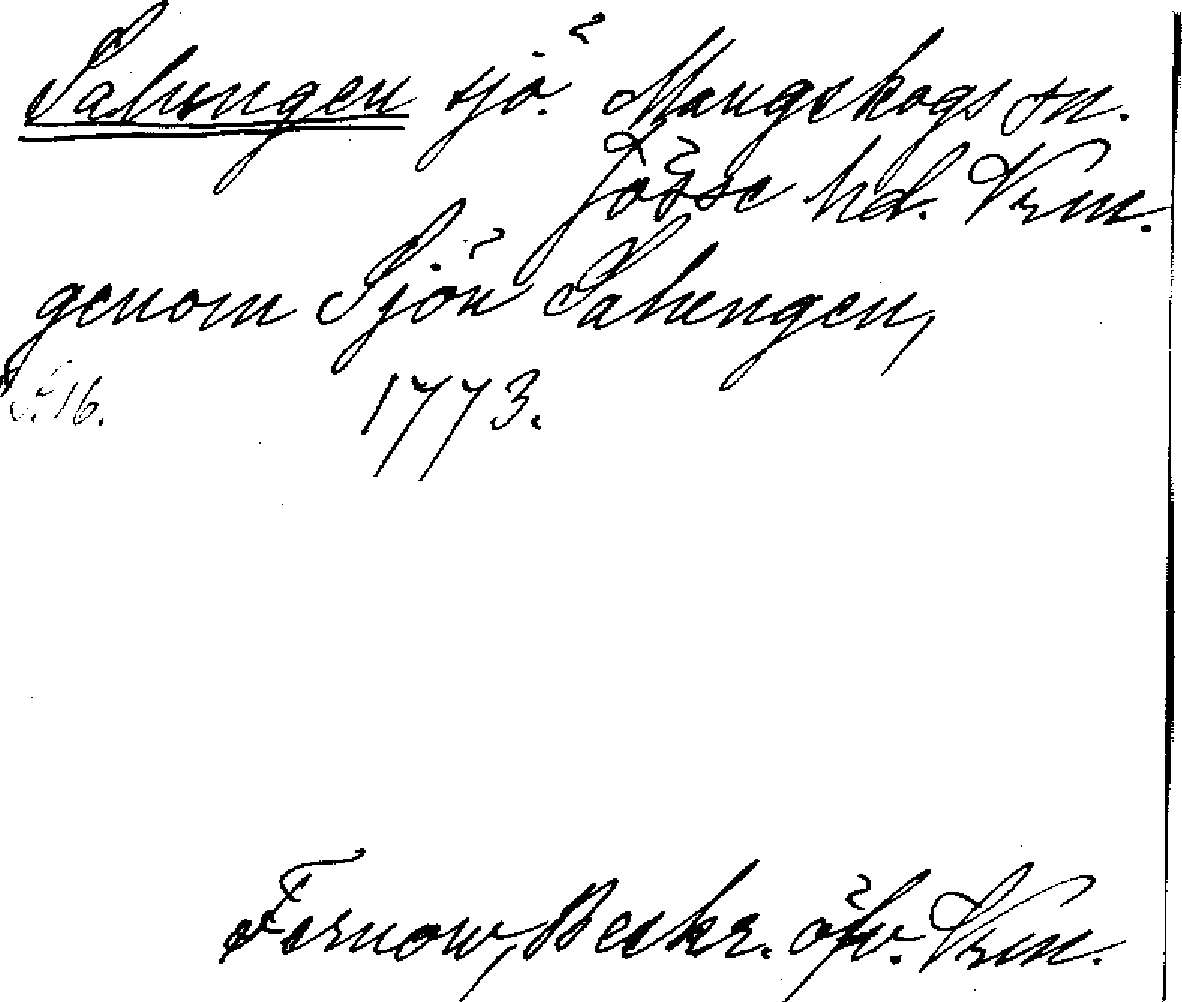 Salungen sjö. Mangskogs sn.
Jösse hd. Vrm.
genom Sjön Salungen,
S. 16. 1773.
Fernow, Beskr. öfv. Vrm.